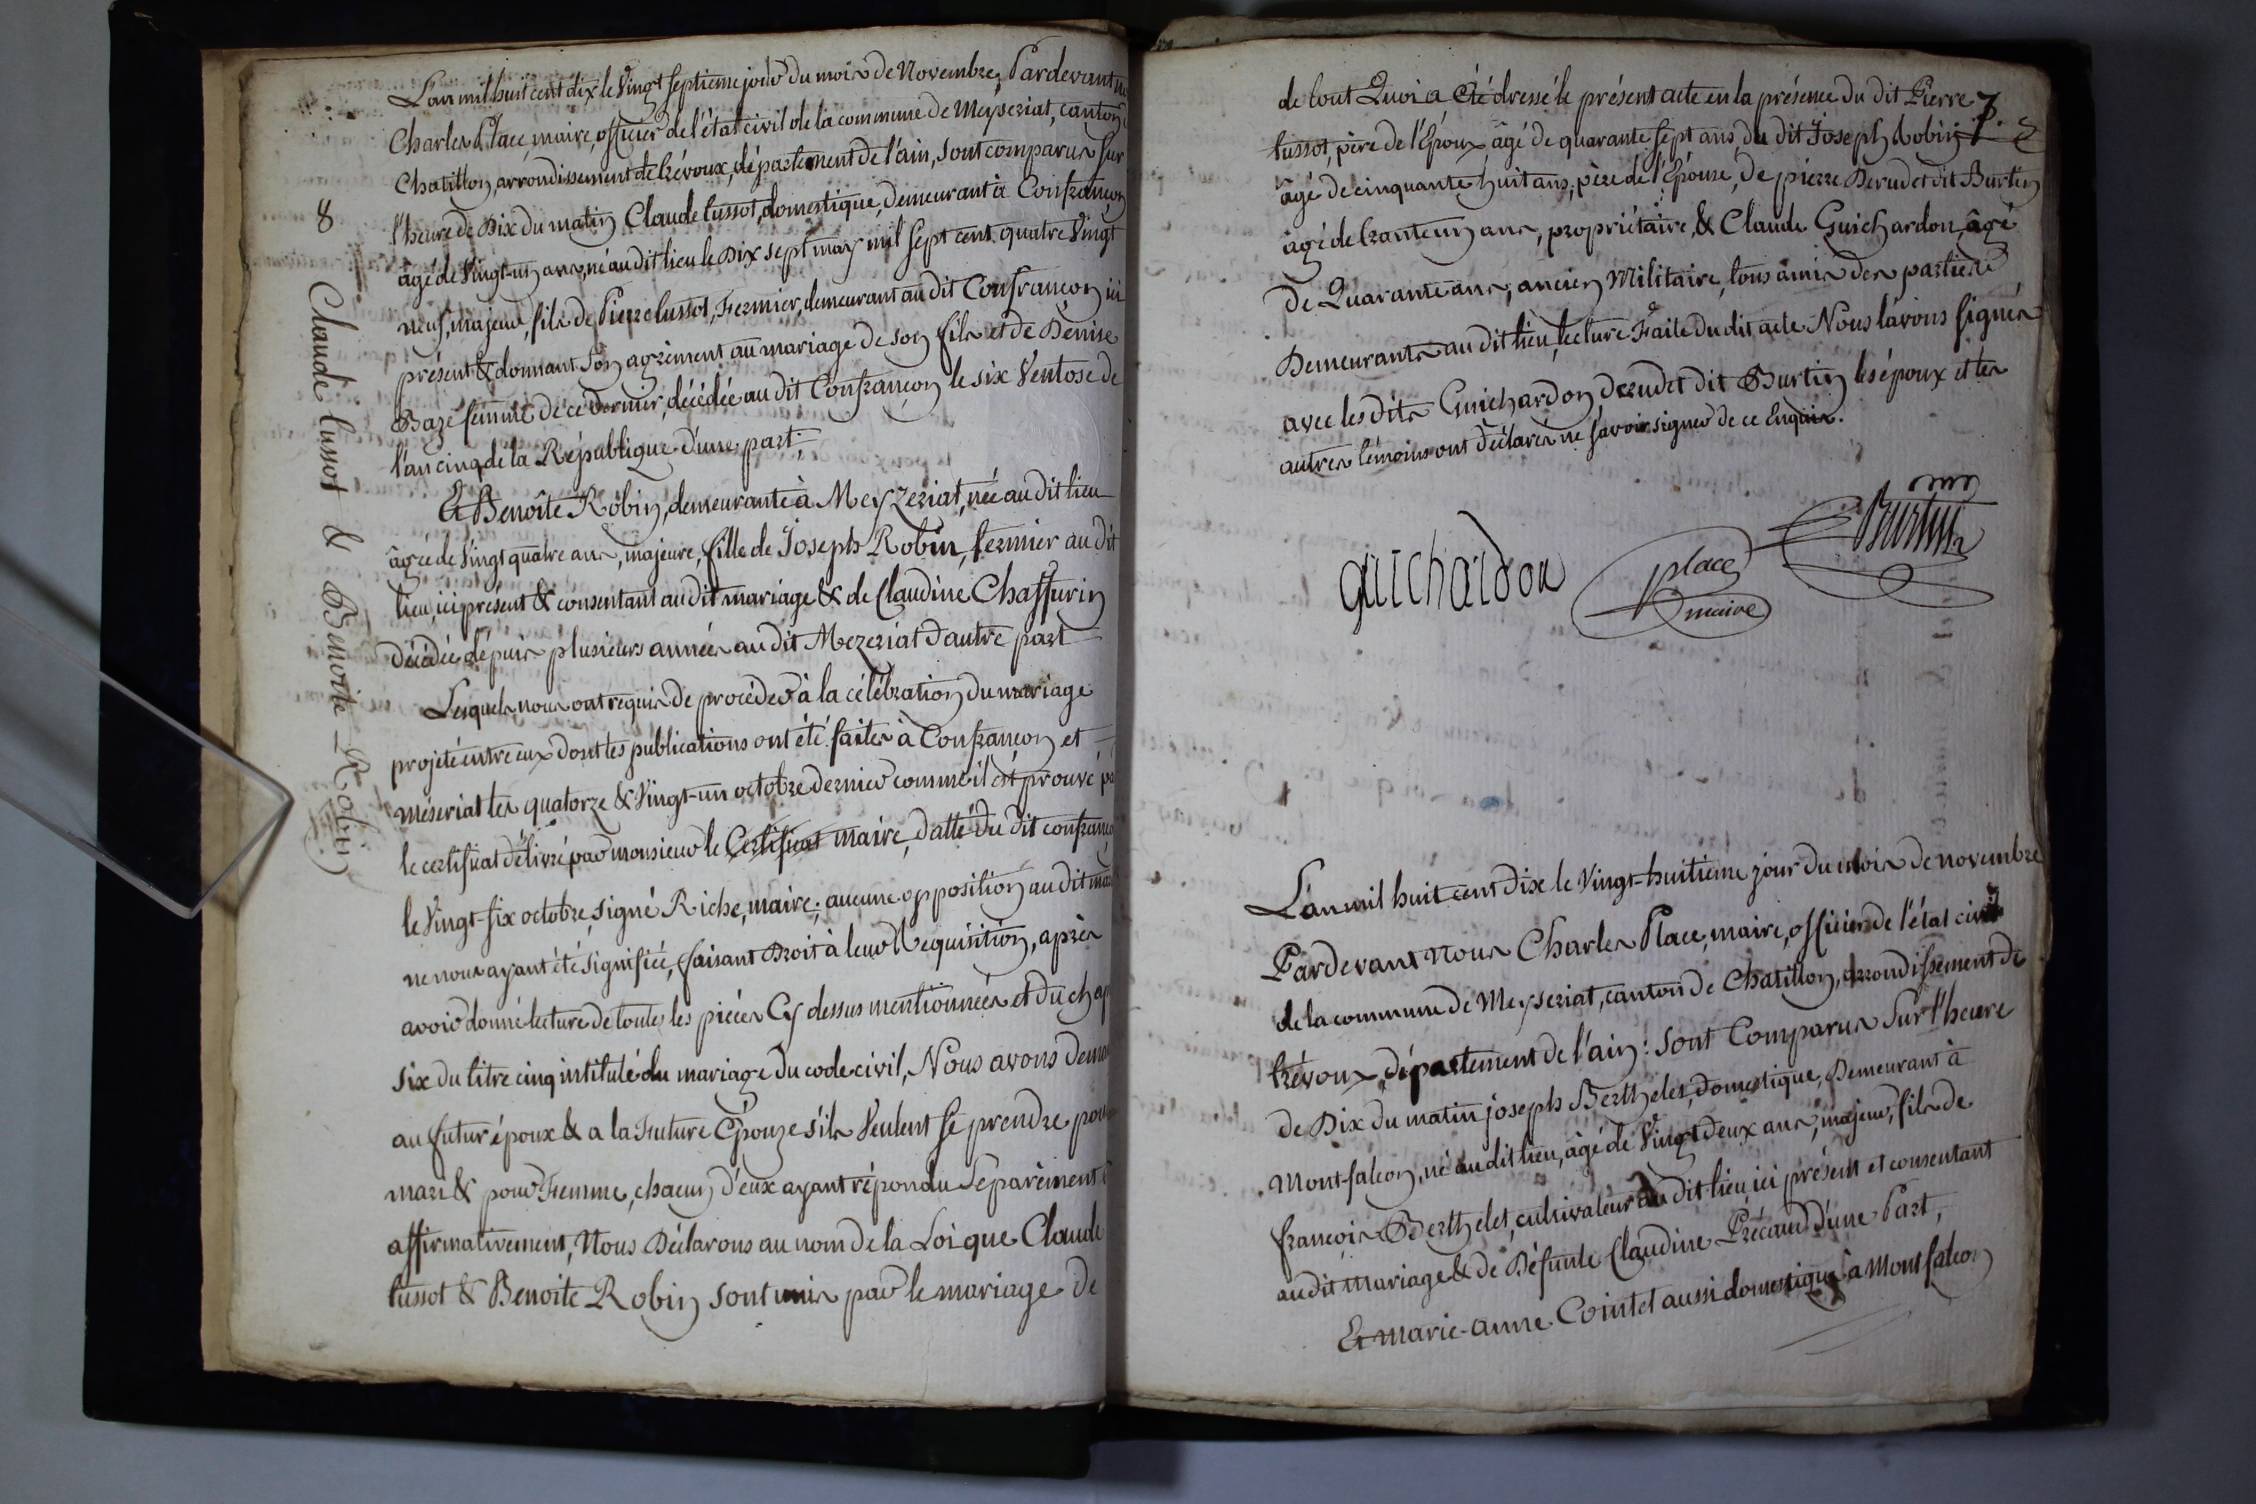 8
Claude tussot & Benoite Robin
L'an mil huit cent dix le Vingt septieme jour du mois de Novembre, Pardevant
Charles Place, maire, officier de l'état civil de la commune de Meyseriat, canton
Chatillon, arrondissement de trévoux, département de l'ain, sont comparus sur
l'heure de Dix du matin Claude tussot, domestique, demeurant à Confrançon
âgé de Vingt-un ans, né au dit lieu le Dix sept may mil sept cent quatre Vingt
neuf, majeur, fils de Pierre tussot, Fermier, demeurant au dit Confrançon ici
présent & donnant son agrément au mariage de son fils et de Denise
Bazé femme de ce dernier, décédée au dit Confrançon le six Ventose de
l'an cinq de la République d'une part;
Et Benoîte Robin, demeurante à Meyzeriat, née au dit lieu
âgée de Vingt quatre ans, majeure, fille de Joseph Robin, fermier au dit
lieu, ici présent & consentant au dit mariage & de Claudine Chaffurin
décédée dépuis plusieurs années au dit Mezeriat d'autre part
Lesquels nous ont requis de procéder à la célébration du mariage
projeté entre eux dont les publications ont été faites à Confrançon et
méseriat les quatorze & Vingt-un octobre dernier comme il est prouvé
le certificat délivré par monsieur le Certificat maire, datté du dit
le Vingt-six octobre, signé Riche, maire; aucune opposition au dit
ne nous ayant été signifiée, faisant Droit à leur Requisition, après
avoir donné lecture de toutes les piéces Cy dessus mentionnées et du
six du titre cinq intitulé du mariage du code civil, Nous avons
au futur époux & a la Future Epouze s'ils Veulent se prendre pour
mari & pour Femme, chacun d'eux ayant répondu séparément
affirmativement, Nous Déclarons au nom de la Loi que Claude
tussot & Benoite Robin sont unis par le mariage de
7.
de tout Quoi a été dressé le présent acte en la présence du dit Pierre
tussot, père de l'Epoux âgé de quarante sept ans, du dit Joseph Robin
âgé de cinquante huit ans, père de l'Epouse, de pierre Derudet dit Burtin
âgé de trante un ans, propriétaire, & Claude Guichardon, âgé
de Quarante ans, ancien Militaire, tous amis des parties
Demeurants au dit lieu, lecture Faite du dit acte Nous l'avons signés
avec les dits Guichardon derudet dit Burtin les époux et les
autres témoins ont déclarés ne savoir signer de ce Enquis.
guichardon
place
maire
Burtin
L'an mil huit cent Dix le Vingt-huitieme jour du mois de novembre
Pardevant Nous Charles Place, maire, officier de l'état civil
de la commune de Meyseriat, canton de Chatillon, arrondissement de
trévoux, département de l'ain: sont Comparus sur l'heure
de Dix du matin joseph Berthelet, domestique, demeurant à
Montfalcon, né au dit lieu, âgé de Vingt deux ans, majeur, fils de
françois Berthelet, cultivateur au dit lieu, ici présent et consentant
au dit mariage & de Défunte Claudine Précaud d'une Part,
Et marie-anne Cointet aussi domestique à Montfalcon